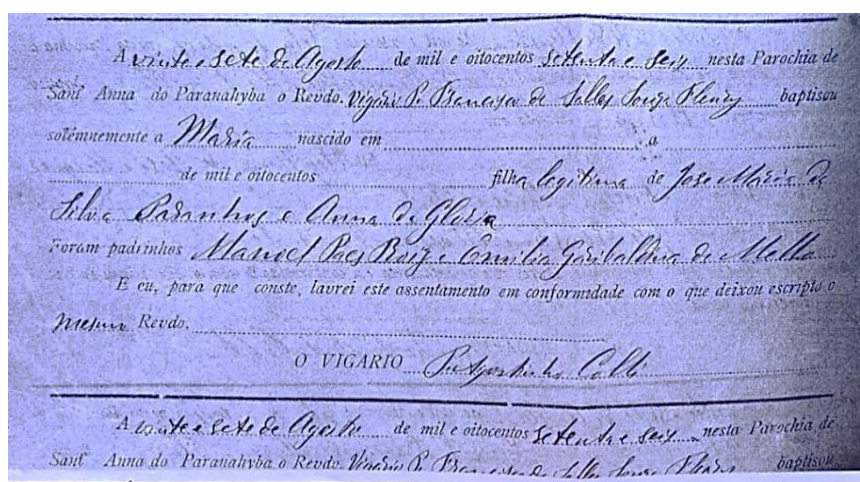 A vinte e sete de Agosto de mil e oitocentos setenta e seis nesta Parochia de
Sant' Anna do Paranahyba o Revdo. Vigário Pe. Francisco de Salles Souza Fleury baptisou
solémnemente a Maria nascido em a
de mil e oitocentos filha legitima de José Maria da
Silva Paranhos e Anna da Gloria
Foram padrinhos Manoel Paes Roiz e Emilia Garibaldina de Mello
E eu, para que conste, lavrei este assentamento em conformidade com o que deixou escripto o
mesmo Revdo.
O VIGARIO Pe Agostinho Colli
A vinte e sete de Agosto de mil e oitocentos setenta e seis nesta Parochia de
Sant' Anna do Paranahyba o Revdo. Vigário Pe. Francisco de Salles Souza Fleury baptisou